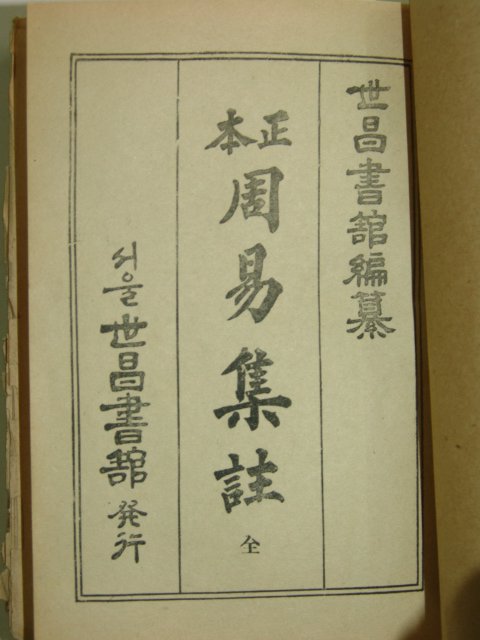 世昌書舘編纂
正本
周易集註
全
서울 世昌書舘 発行